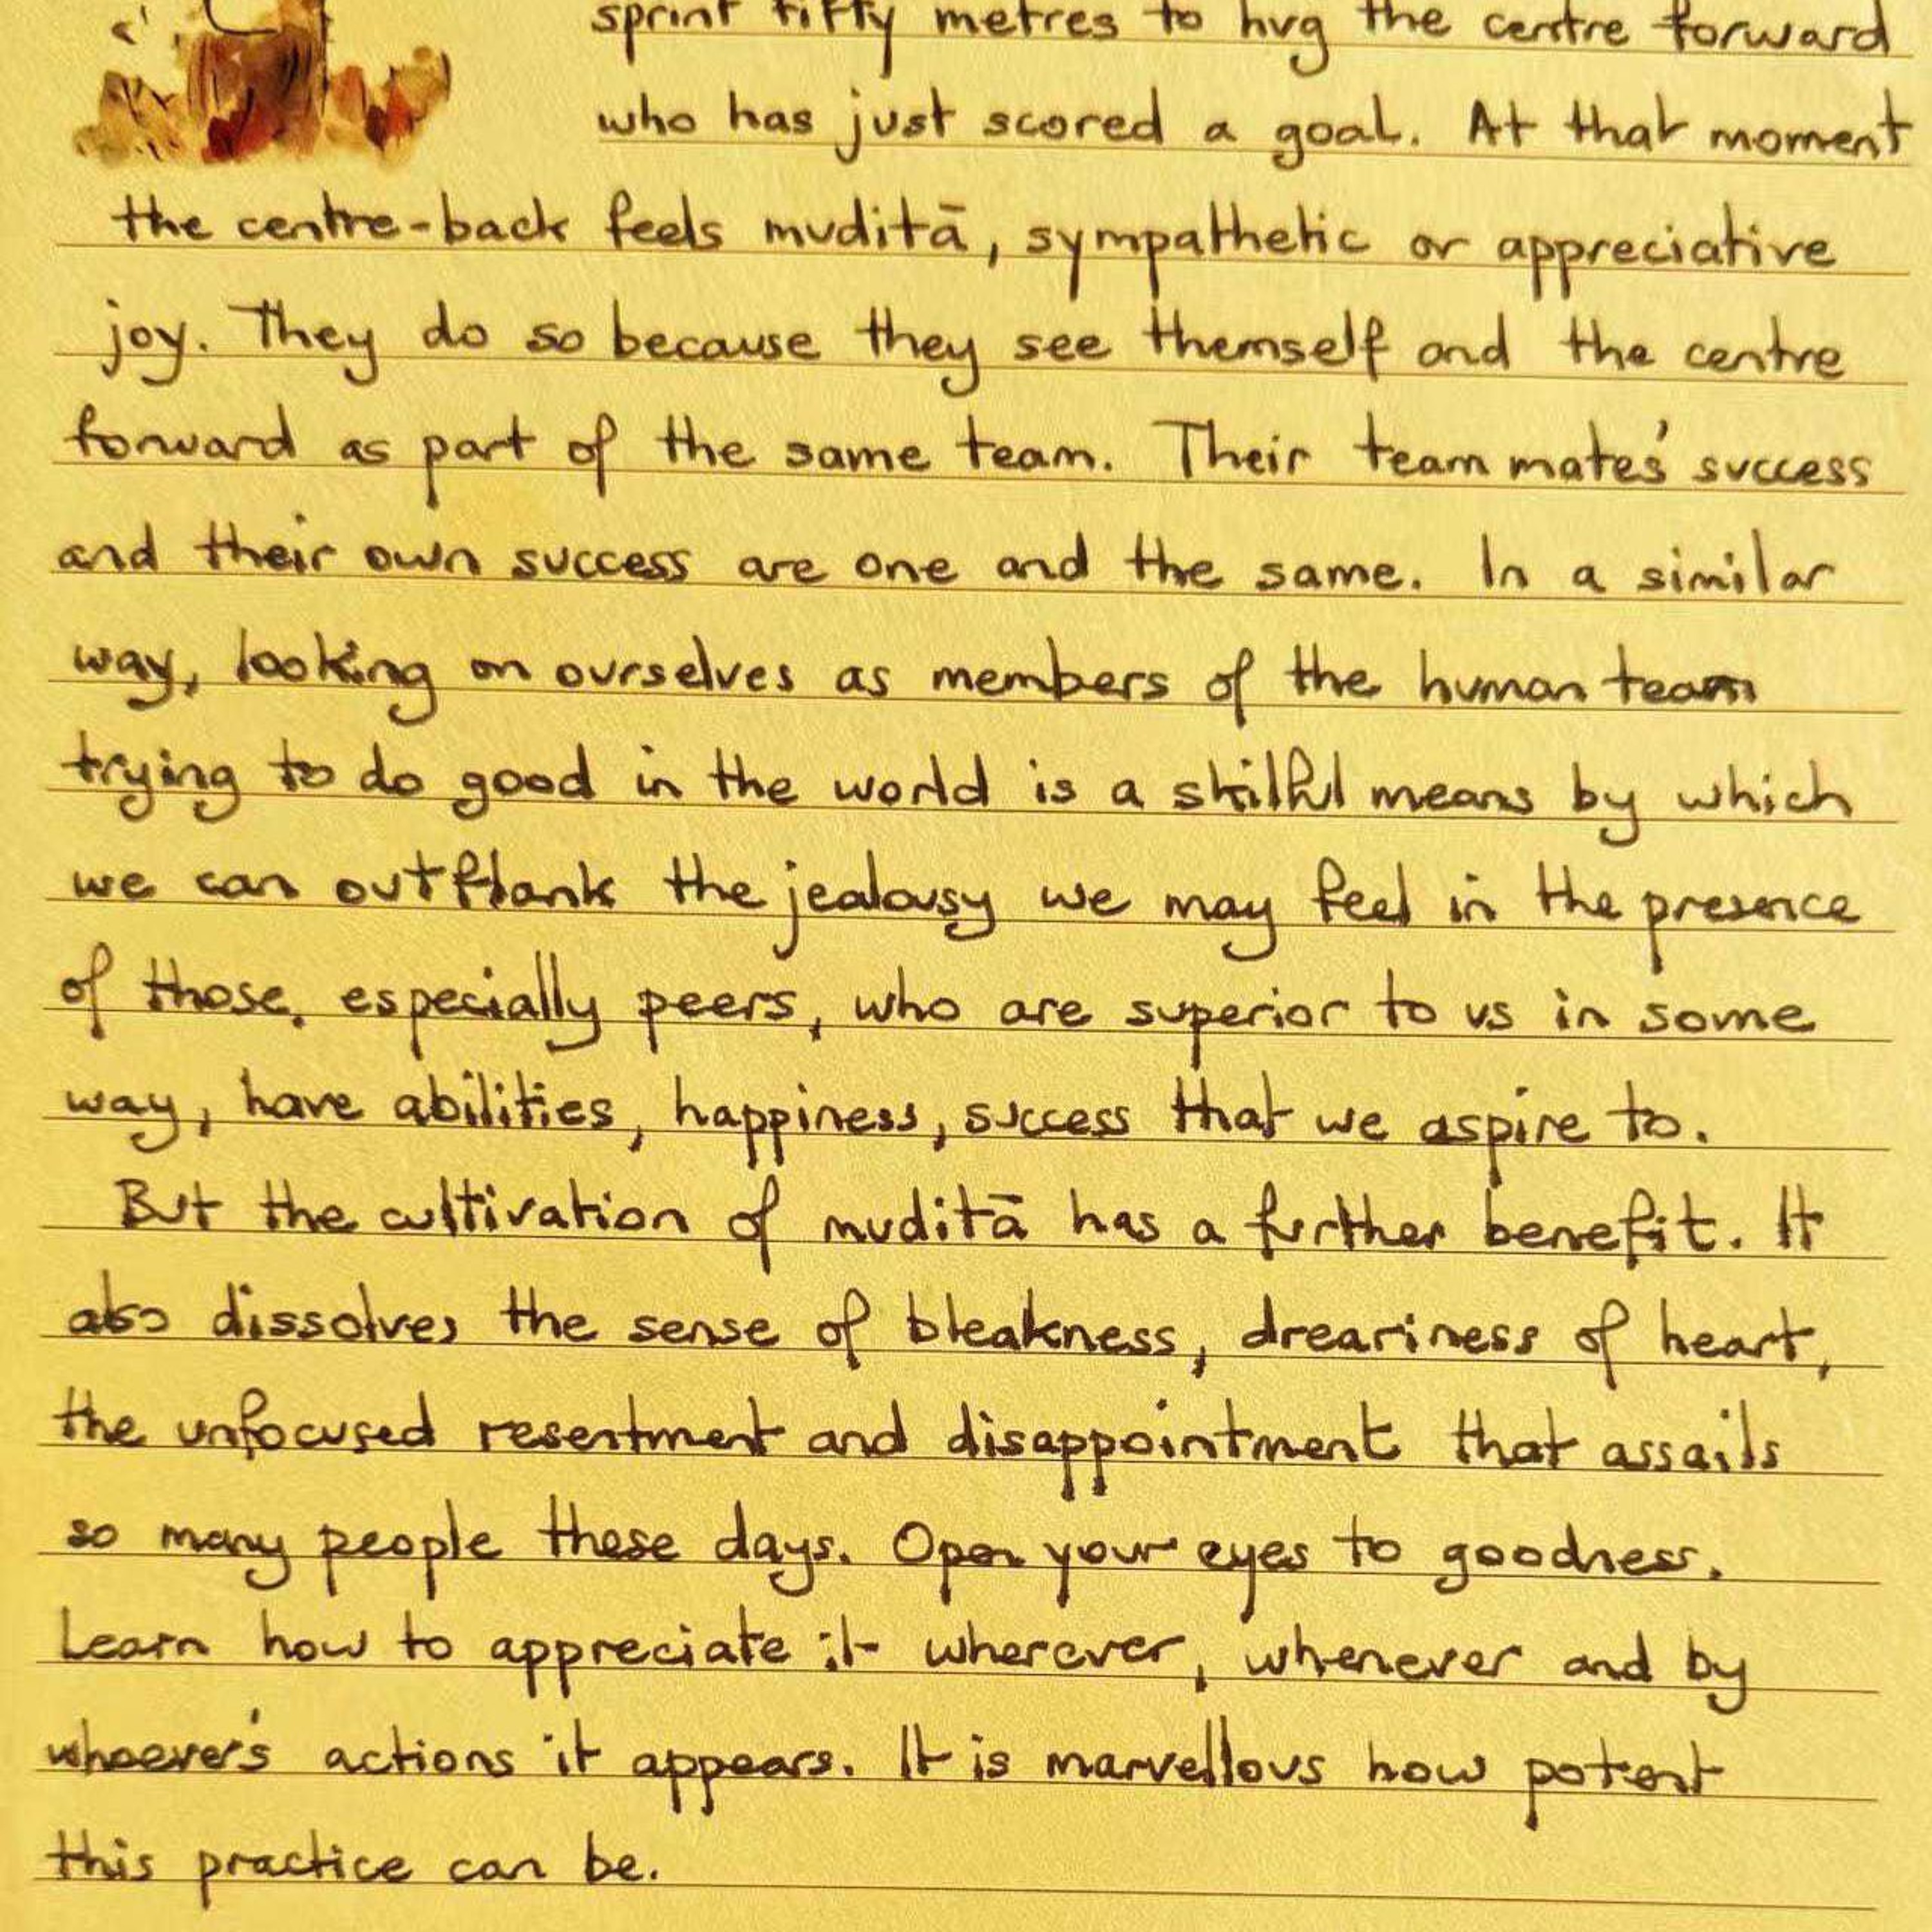 sprint fifty metres to hug the centre forward
who has just scored a goal. At that moment
the centre-back feels muditā, sympathetic or appreciative
joy. They do so because they see themself and the centre
forward as part of the same team. Their team mates' success
and their own success are one and the same. In a similar
way, looking on ourselves as members of the human team
trying to do good in the world is a skilful means by which
we can outflank the jealousy we may feel in the presence
of those, especially peers, who are superior to us in some
way, have abilities, happiness, success that we aspire to.
But the cultivation of muditā has a further benefit. It
also dissolves the sense of bleakness, dreariness of heart,
the unfocused resentment and disappointment that assails
so many people these days. Open your eyes to goodness.
Learn how to appreciate it wherever, whenever and by
whoever's actions it appears. It is marvellous how potent
this practice can be.